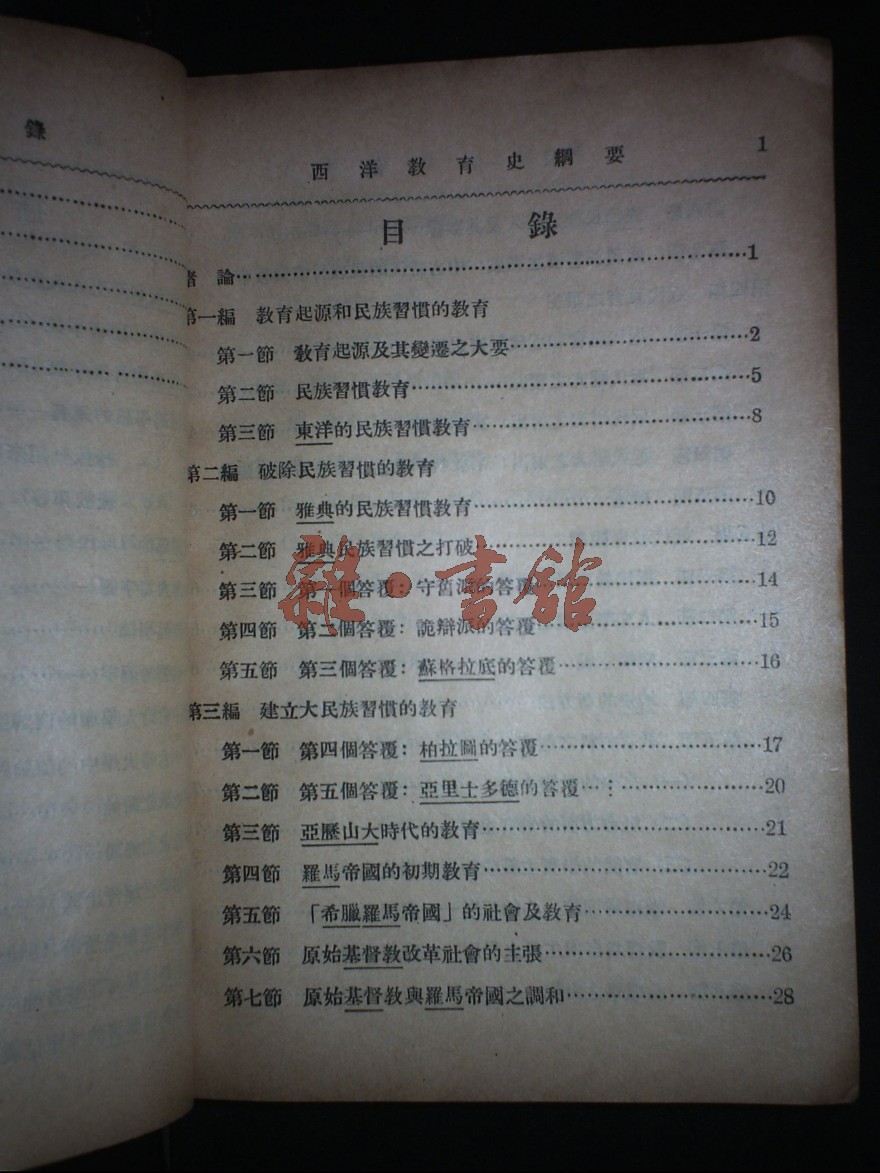 錄
西洋教育史綱要 1
目 錄
緒論…………1
第一編 教育起源和民族習慣的教育
第一節 教育起源及其變遷之大要…………2
第二節 民族習慣教育…………5
第三節 東洋的民族習慣教育…………8
第二編 破除民族習慣的教育
第一節 雅典的民族習慣教育…………10
第二節 雅典民族習慣之打破…………12
第三節 第一個答覆:守舊派的答覆…………14
第四節 第二個答覆:詭辯派的答覆…………15
第五節 第三個答覆:蘇格拉底的答覆…………16
第三編 建立大民族習慣的教育
第一節 第四個答覆:柏拉圖的答覆…………17
第二節 第五個答覆:亞里士多德的答覆…………20
第三節 亞歷山大時代的教育…………21
第四節 羅馬帝國的初期教育…………22
第五節 「希臘羅馬帝國」的社會及教育…………24
第六節 原始基督教改革社會的主張…………26
第七節 原始基督教與羅馬帝國之調和…………28
雜·書館